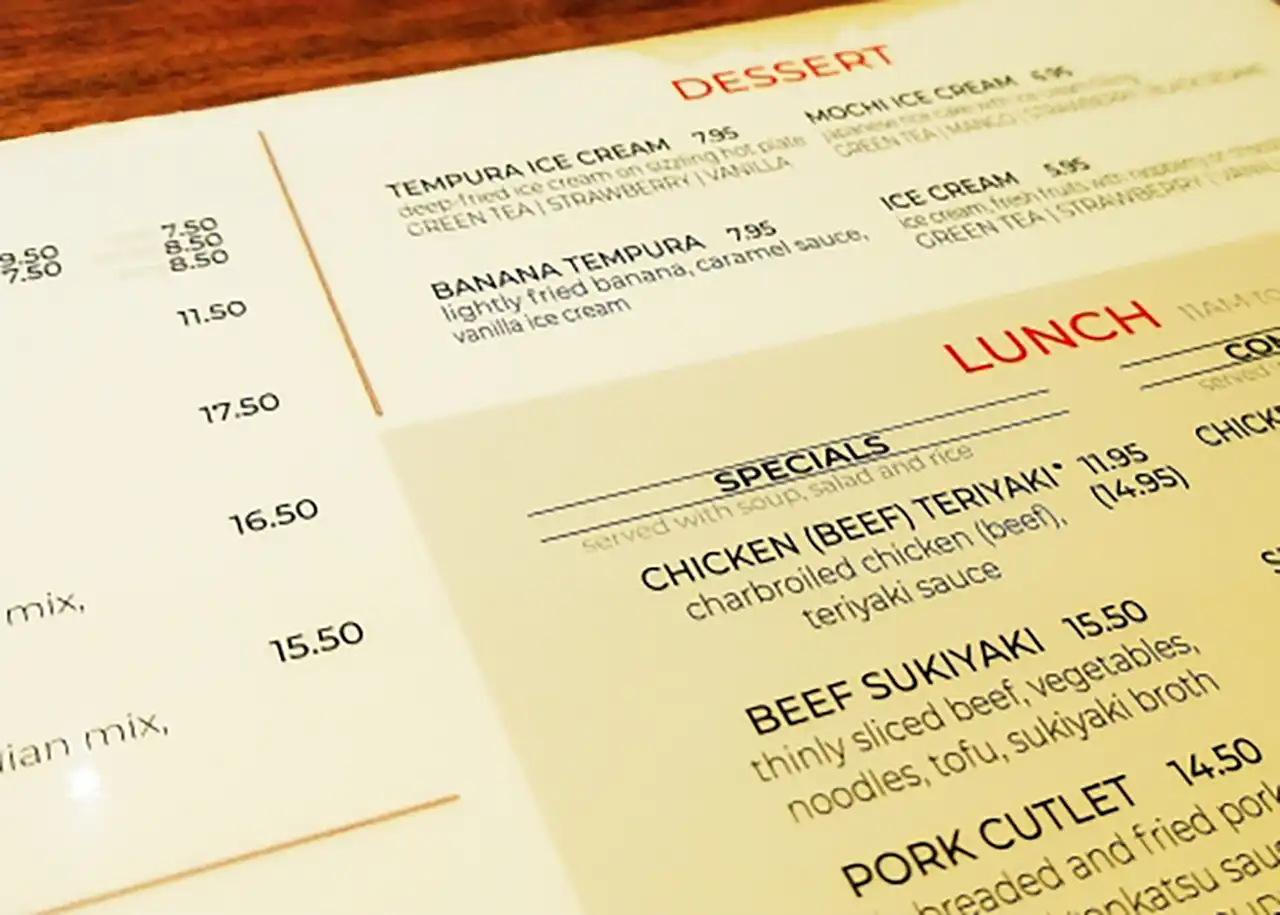 9.50 7.50
7.50 8.50
8.50
11.50
17.50
16.50
mix,
15.50
mix,
DESSERT
TEMPURA ICE CREAM 7.95
deep-fried ice cream on sizzling hot plate
GREEN TEA | STRAWBERRY | VANILLA
BANANA TEMPURA 7.95
lightly fried banana, caramel sauce,
vanilla ice cream
MOCHI ICE CREAM 6.95
japanese rice cake with ice cream
GREEN TEA | MANGO | STRAWBERRY
ICE CREAM 5.95
ice cream, fresh fruits with raspberry or
GREEN TEA | STRAWBERRY |
LUNCH 11AM TO
SPECIALS
served with soup, salad and rice
CHICKEN (BEEF) TERIYAKI* 11.95
(14.95)
charbroiled chicken (beef),
teriyaki sauce
BEEF SUKIYAKI 15.50
thinly sliced beef, vegetables,
noodles, tofu, sukiyaki broth
PORK CUTLET 14.50
breaded and fried pork
served